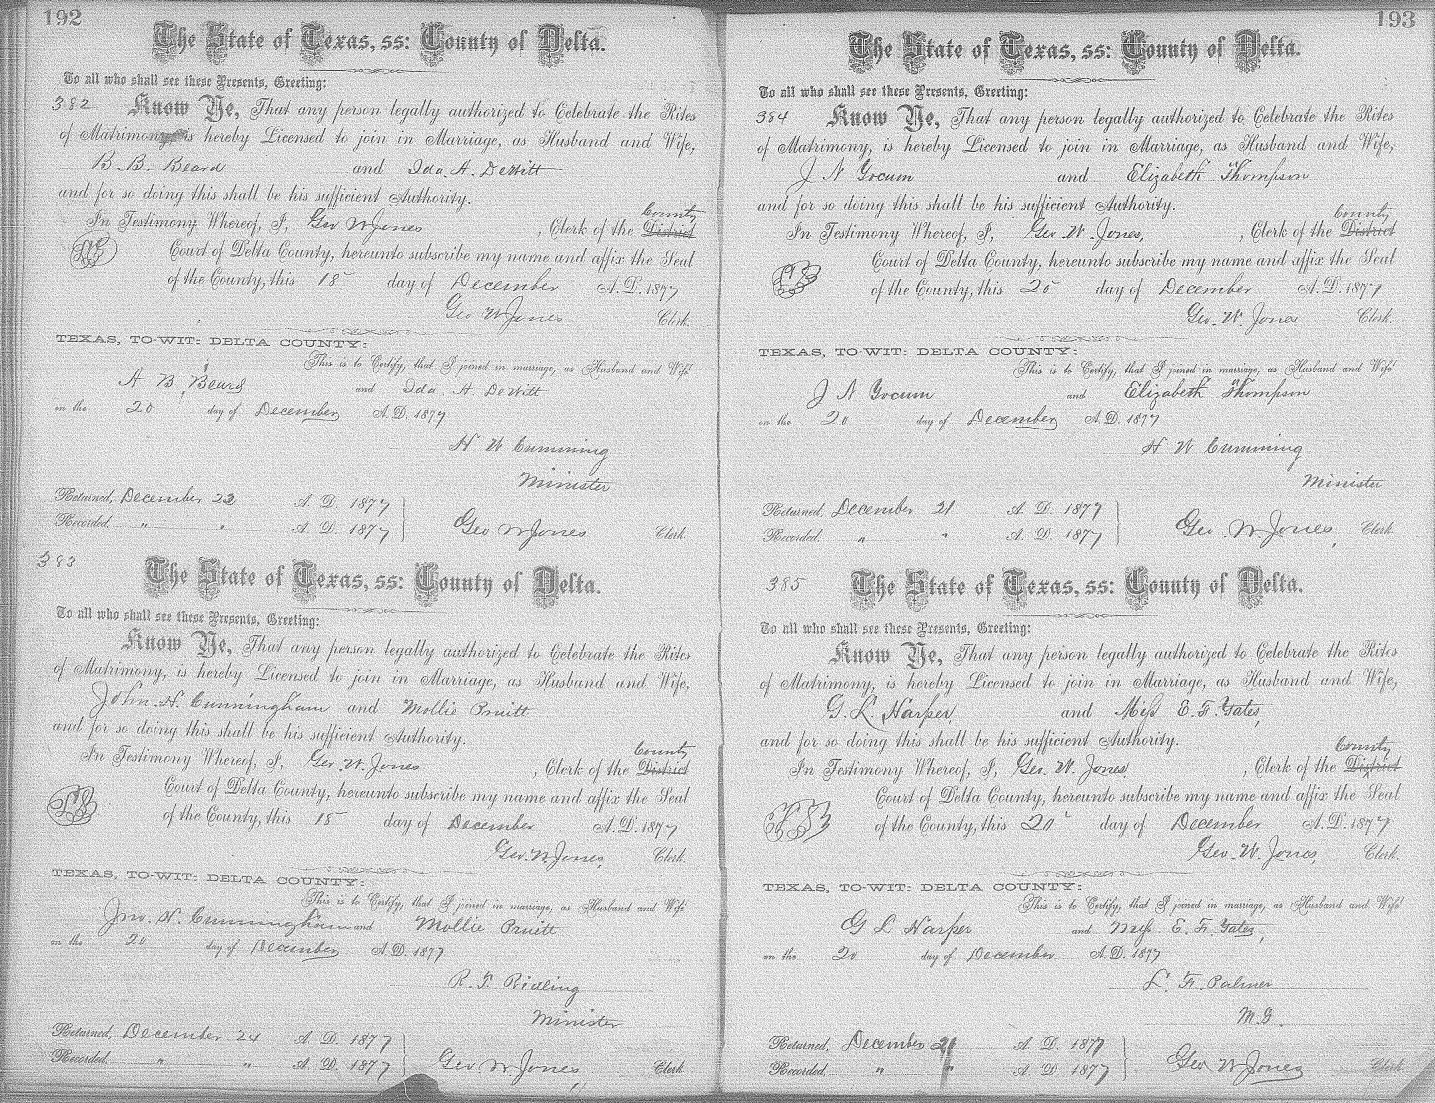 192
The State of Texas, ss: County of Delta.
To all who shall see these Presents, Greeting:
382 Know Ye, That any person legally authorized to Celebrate the Rites
of Matrimony, is hereby Licensed to join in Marriage, as Husband and Wife,
B. B. Beard and Ida. A. DeWitt
and for so doing this shall be his sufficient Authority.
In Testimony Whereof, I, Geo W Jones, Clerk of the District County
Court of Delta County, hereunto subscribe my name and affix the Seal
of the County, this 18 day of December A. D. 1877
Geo W Jones Clerk.
TEXAS, TO-WIT: DELTA COUNTY:
This is to Certify, that I joined in marriage, as Husband and Wife
A B. Beard and Ida A DeWitt
on the 20 day of December A. D. 1877
H W Cumming
Minister
Returned, December 22 A. D. 1877
Recorded. " " A. D. 1877 Geo W Jones Clerk.
383
The State of Texas, ss: County of Delta.
To all who shall see these Presents, Greeting:
Know Ye, That any person legally authorized to Celebrate the Rites
of Matrimony, is hereby Licensed to join in Marriage, as Husband and Wife,
John. H. Cunningham and Mollie Pruitt
and for so doing this shall be his sufficient Authority.
In Testimony Whereof, I, Geo. W. Jones, Clerk of the District County
Court of Delta County, hereunto subscribe my name and affix the Seal
of the County, this 18 day of December A. D. 1877
Geo. W Jones, Clerk.
TEXAS, TO-WIT: DELTA COUNTY:
This is to Certify, that I joined in marriage, as Husband and Wife
Jno. H. Cunningham and Mollie Pruitt
on the 20 day of December A. D. 1877
R. F. Ridling
Minister
Returned, December 24 A. D. 1877
Recorded. " " A. D. 1877 Geo. W Jones, Clerk
193
The State of Texas, ss: County of Delta.
To all who shall see these Presents, Greeting:
384 Know Ye, That any person legally authorized to Celebrate the Rites
of Matrimony, is hereby Licensed to join in Marriage, as Husband and Wife,
J N Yocum and Elizabeth Thompson
and for so doing this shall be his sufficient Authority.
In Testimony Whereof, I, Geo. W. Jones, Clerk of the District County
Court of Delta County, hereunto subscribe my name and affix the Seal
of the County, this 20 day of December A. D. 1877
Geo. W. Jones Clerk.
TEXAS, TO-WIT: DELTA COUNTY:
This is to Certify, that I joined in marriage, as Husband and Wife
J N Yocum and Elizabeth Thompson
on the 20 day of December A. D. 1877
H W Cumming
Minister
Returned, December 21 A. D. 1877
Recorded. " " A. D. 1877 Geo. W. Jones, Clerk
385 The State of Texas, ss: County of Delta.
To all who shall see these Presents, Greeting:
Know Ye, That any person legally authorized to Celebrate the Rites
of Matrimony, is hereby Licensed to join in Marriage, as Husband and Wife,
G. L. Harper and Miss E. F. Gates,
and for so doing this shall be his sufficient Authority.
In Testimony Whereof, I, Geo. W. Jones, Clerk of the District County
Court of Delta County, hereunto subscribe my name and affix the Seal
of the County, this 20 day of December A. D. 1877
Geo. W. Jones, Clerk.
TEXAS, TO-WIT: DELTA COUNTY:
This is to Certify, that I joined in marriage, as Husband and Wife
G L Harper and Miss E. F. Gates,
on the 20 day of December A. D. 1877
L. F. Palmer
M. G.
Returned, December A. D. 1877
Recorded. " " A. D. 1877 Geo W Jones Clerk